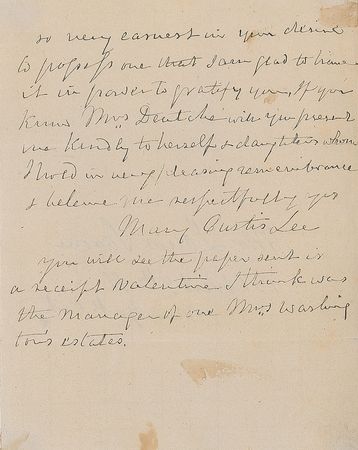 so very earnest in your desire
to possess one that I am glad to have
it in power to gratify you, If you
know Mrs will you present
me kindly to herself & daughters whom
I hold in very pleasing remembrance
& believe me respectfully yrs
Mary Custis Lee
you will see the paper sent is
a receipt Valentine I think was
the manager of one Mrs Washing
ton's estates.